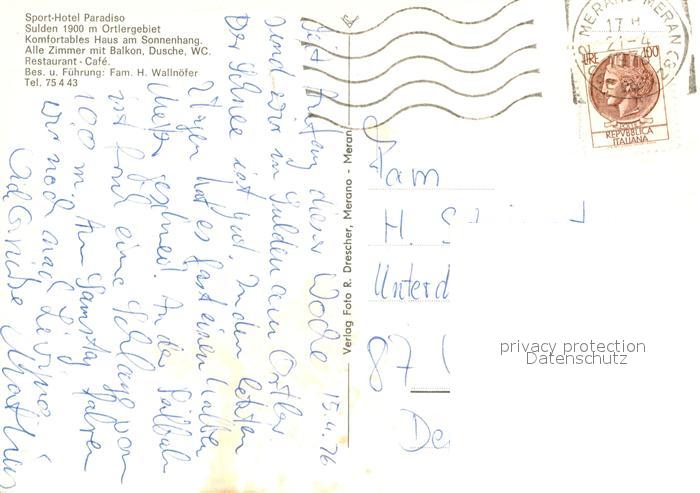 Sport-Hotel Paradiso
Sulden 1900 m Ortlergebiet
Komfortables Haus am Sonnenhang.
Alle Zimmer mit Balkon, Dusche, WC.
Restaurant - Café.
Bes. u. Führung: Fam. H. Wallnöfer
Tel. 75 4 43
15.4.76
Seit Anfang dieser Woche
sind wir in Sulden am Ortler.
Der Schnee ist gut. In den letzten
Tagen hat es fast einen halben
Meter geschneit. An der Seilbahn
ist eine Schlange von
100 m. Am Samstag fahren
wir noch nach Livigno
Grüße
Verlag Foto R. Drescher, Merano - Meran
MERANO MERAN
17 H
21-4
LIRE 100
REPVBBLICA
ITALIANA
Fam
H. S
Unterd
87
De
privacy protection
Datenschutz